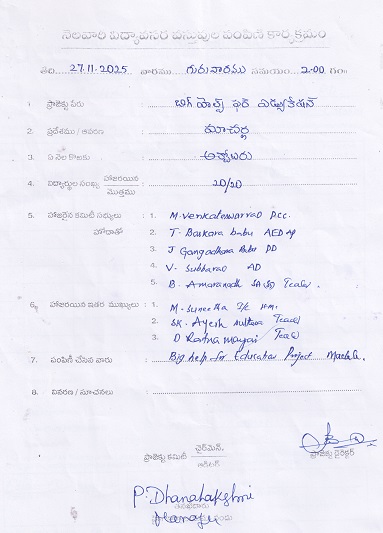 నెలవారి విద్యావసర వస్తువుల పంపిణి కార్యక్రమం
తేది. 27.11.2025 వారము గురువారము సమయం 2.00 గం॥
1. ప్రాజెక్టు పేరు : బిగ్ హెల్ప్ ఫర్ ఎడ్యుకేషన్
2. ప్రదేశము / ఆవరణ : మాచర్ల
3. ఏ నెల కొరకు : అక్టోబరు
4. విద్యార్థుల సంఖ్య హాజరయిన / మొత్తము : 20/20
5. హాజరైన కమిటీ సభ్యులు : 1. M. Venkateswarrao DCC.
హోదాతో 2. T. Baskara babu AED AP
3. J Gangadhara Babu DD
4. V. Subbarao AD
5. B. Amaranadh SA Teacher.
6. హాజరయిన ఇతర ముఖ్యులు : 1. M. Suneetha
2. SK. Ayesha Sultana Teacher
3. D Ratna mayari Teacher
7. పంపిణి చేసిన వారు : Big help for Education Project Macherla.
8. వివరణ / సూచనలు :
ప్రాజెక్టు కమిటీ ఛైర్మెన్. / ఆడిటర్
ప్రాజెక్టు డైరెక్టర్
P. Dhanalakshmi
Manager